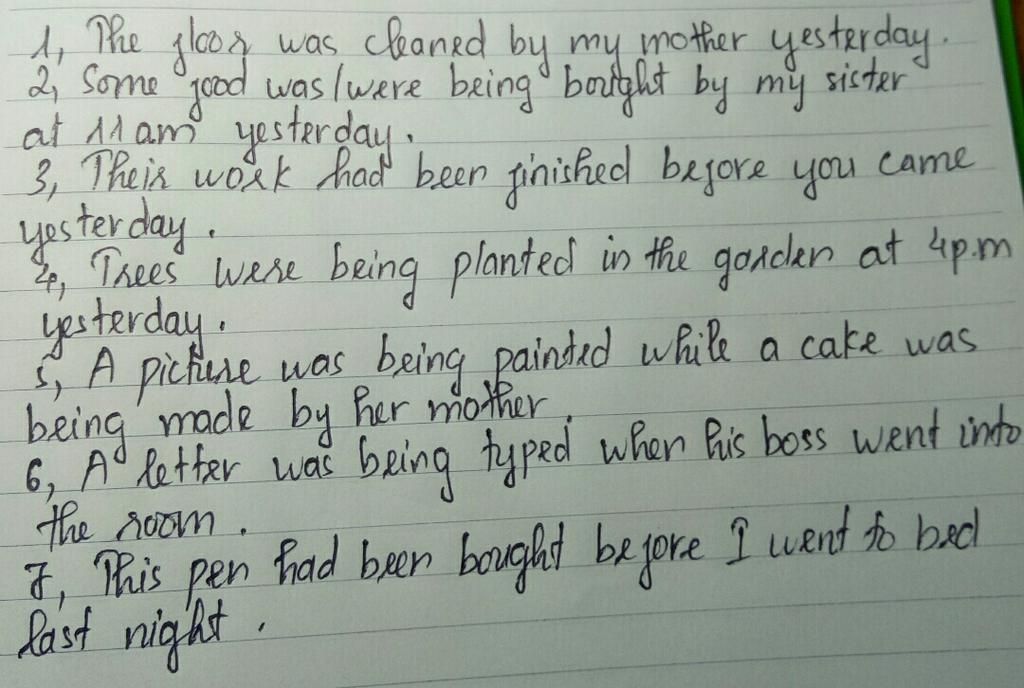 1, The floor was cleaned by my mother yesterday.
2, Some food was/were being bought by my sister
at 11am yesterday.
3, Their work had been finished before you came
yesterday.
4, Trees were being planted in the garden at 4p.m
yesterday.
5, A picture was being painted while a cake was
being made by her mother.
6, A letter was being typed when his boss went into
the room.
7, This pen had been bought before I went to bed
last night.